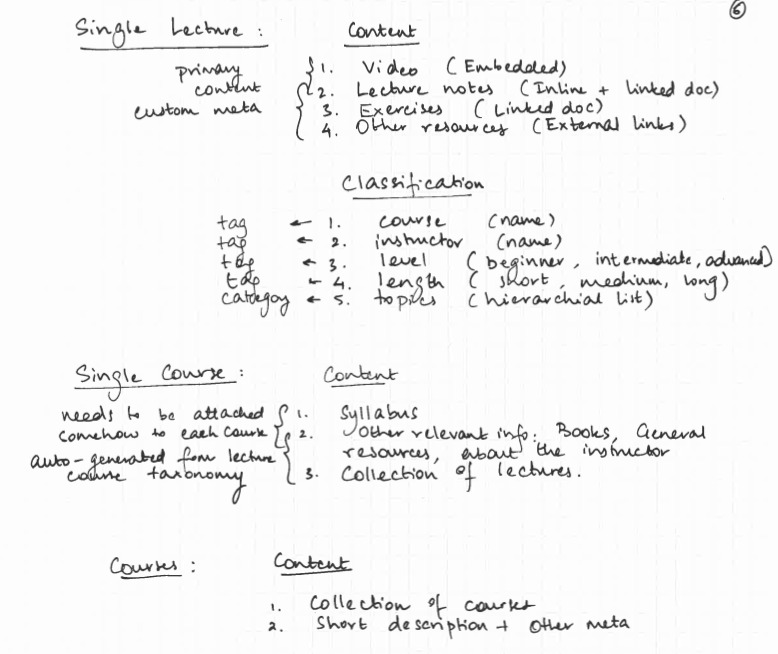 6
Single Lecture : Content
primary content { 1. Video (Embedded)
custom meta { 2. Lecture notes (Inline + linked doc)
3. Exercises (Linked doc)
4. Other resources (External links)
Classification
tag ← 1. course (name)
tag ← 2. instructor (name)
tag ← 3. level (beginner, intermediate, advanced)
tag ← 4. length (short, medium, long)
category ← 5. topics (hierarchial list)
Single Course : Content
needs to be attached { 1. Syllabus
somehow to each course { 2. Other relevant info: Books, General
auto-generated from lecture resources, about the instructor
course taxonomy { 3. Collection of lectures.
Courses : Content
1. Collection of courses
2. Short description + other meta